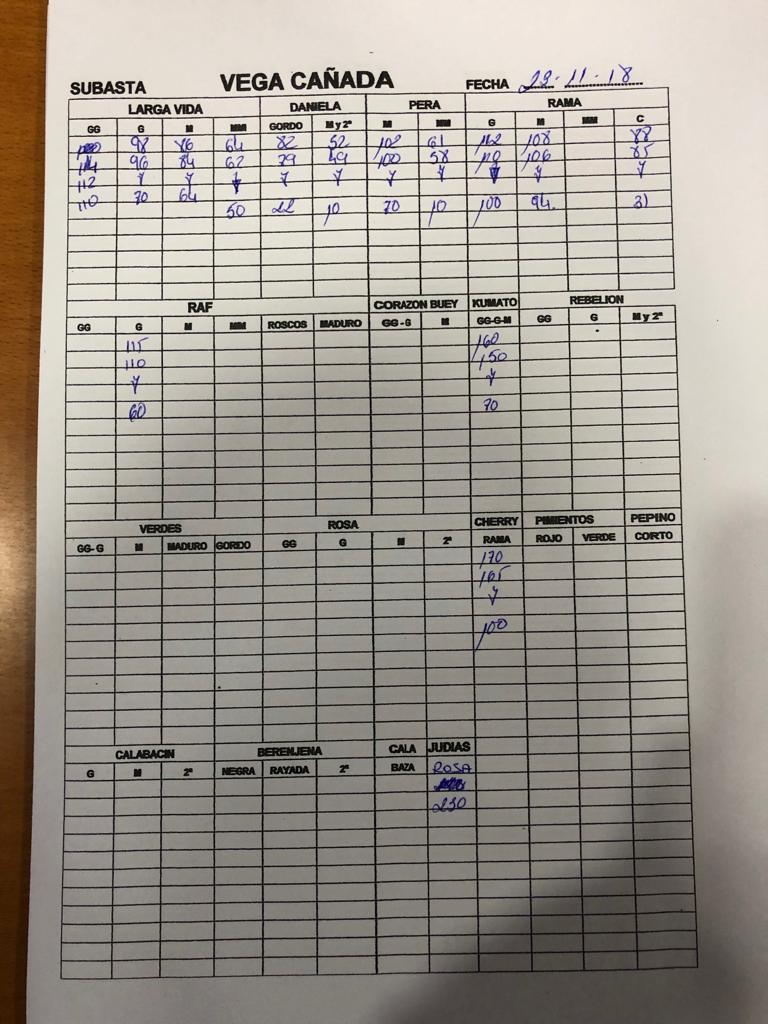 SUBASTA VEGA CAÑADA FECHA 23-11-18
LARGA VIDA DANIELA PERA RAMA
GG G M MM GORDO M y 2ª M MM G M MM C
98 86 64 82 52 102 61 112 108 88
114 96 84 62 79 49 100 58 110 106 85
112 y y y y y y y y y y
110 70 64
50 22 10 70 10 100 94 31
RAF CORAZON BUEY KUMATO REBELION
GG G M MM ROSCOS MADURO GG-G M GG-G-M GG G M y 2ª
115 160
110 150
y y
60 70
VERDES ROSA CHERRY PIMIENTOS PEPINO
GG-G M MADURO GORDO GG G M 2ª RAMA ROJO VERDE CORTO
170
165
y
100
CALABACIN BERENJENA CALA JUDIAS
G M 2ª NEGRA RAYADA 2ª BAZA ROSA
230